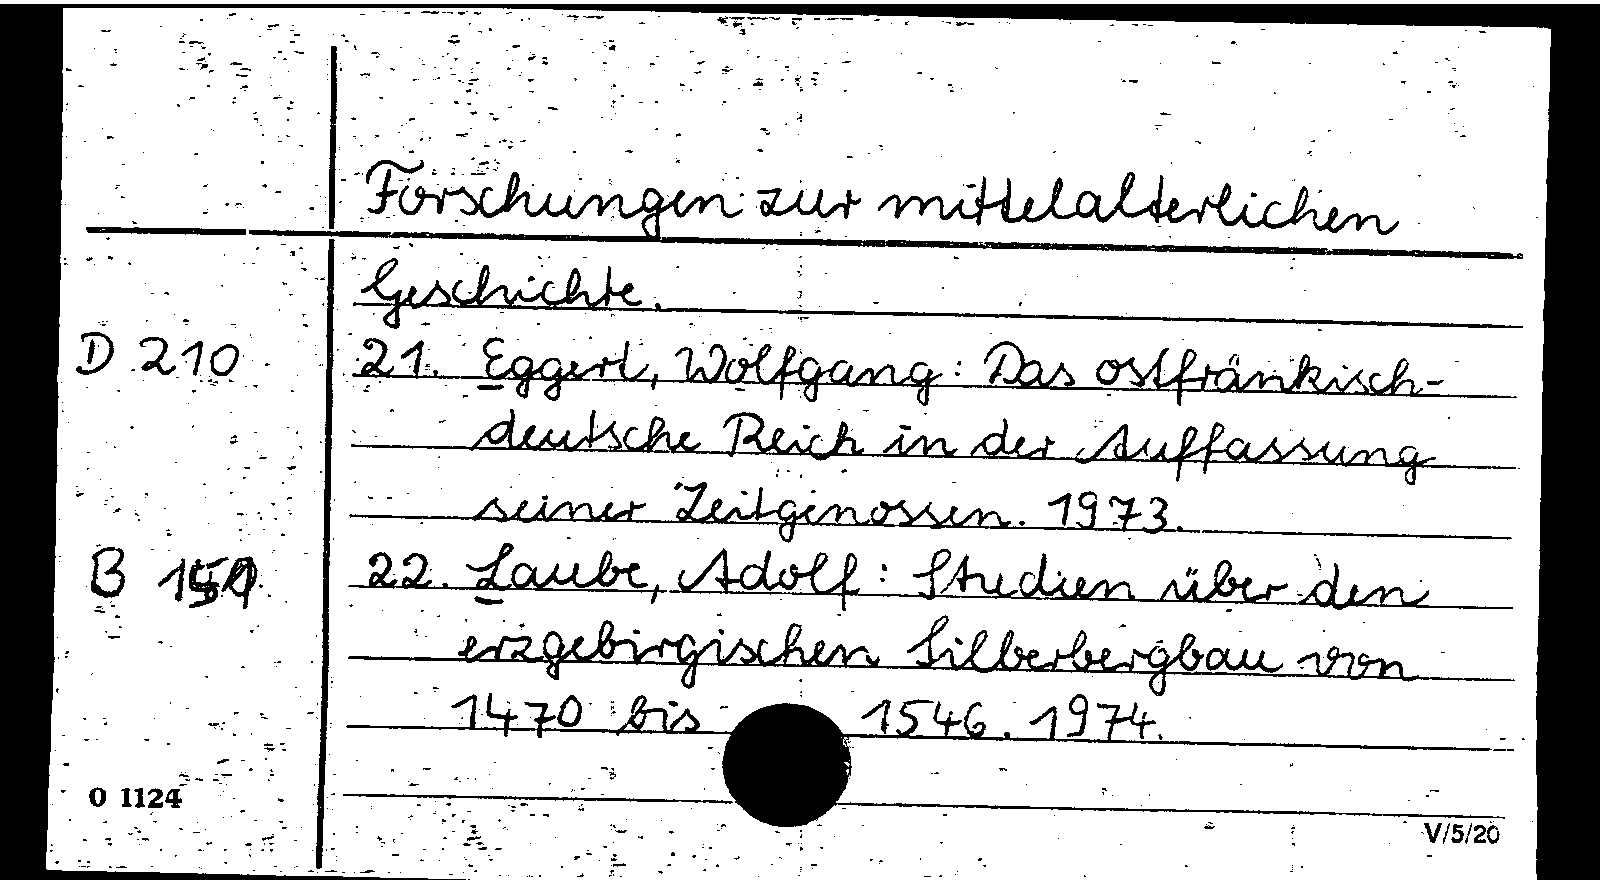 Forschungen zur mittelalterlichen
Geschichte.
D 210 21. Eggert, Wolfgang: Das ostfränkisch-
deutsche Reich in der Auffassung
seiner Zeitgenossen. 1973.
B 22. Laube, Adolf: Studien über den
erzgebirgischen Silberbergbau von
1470 bis 1546. 1974.
O 1124
V/5/20